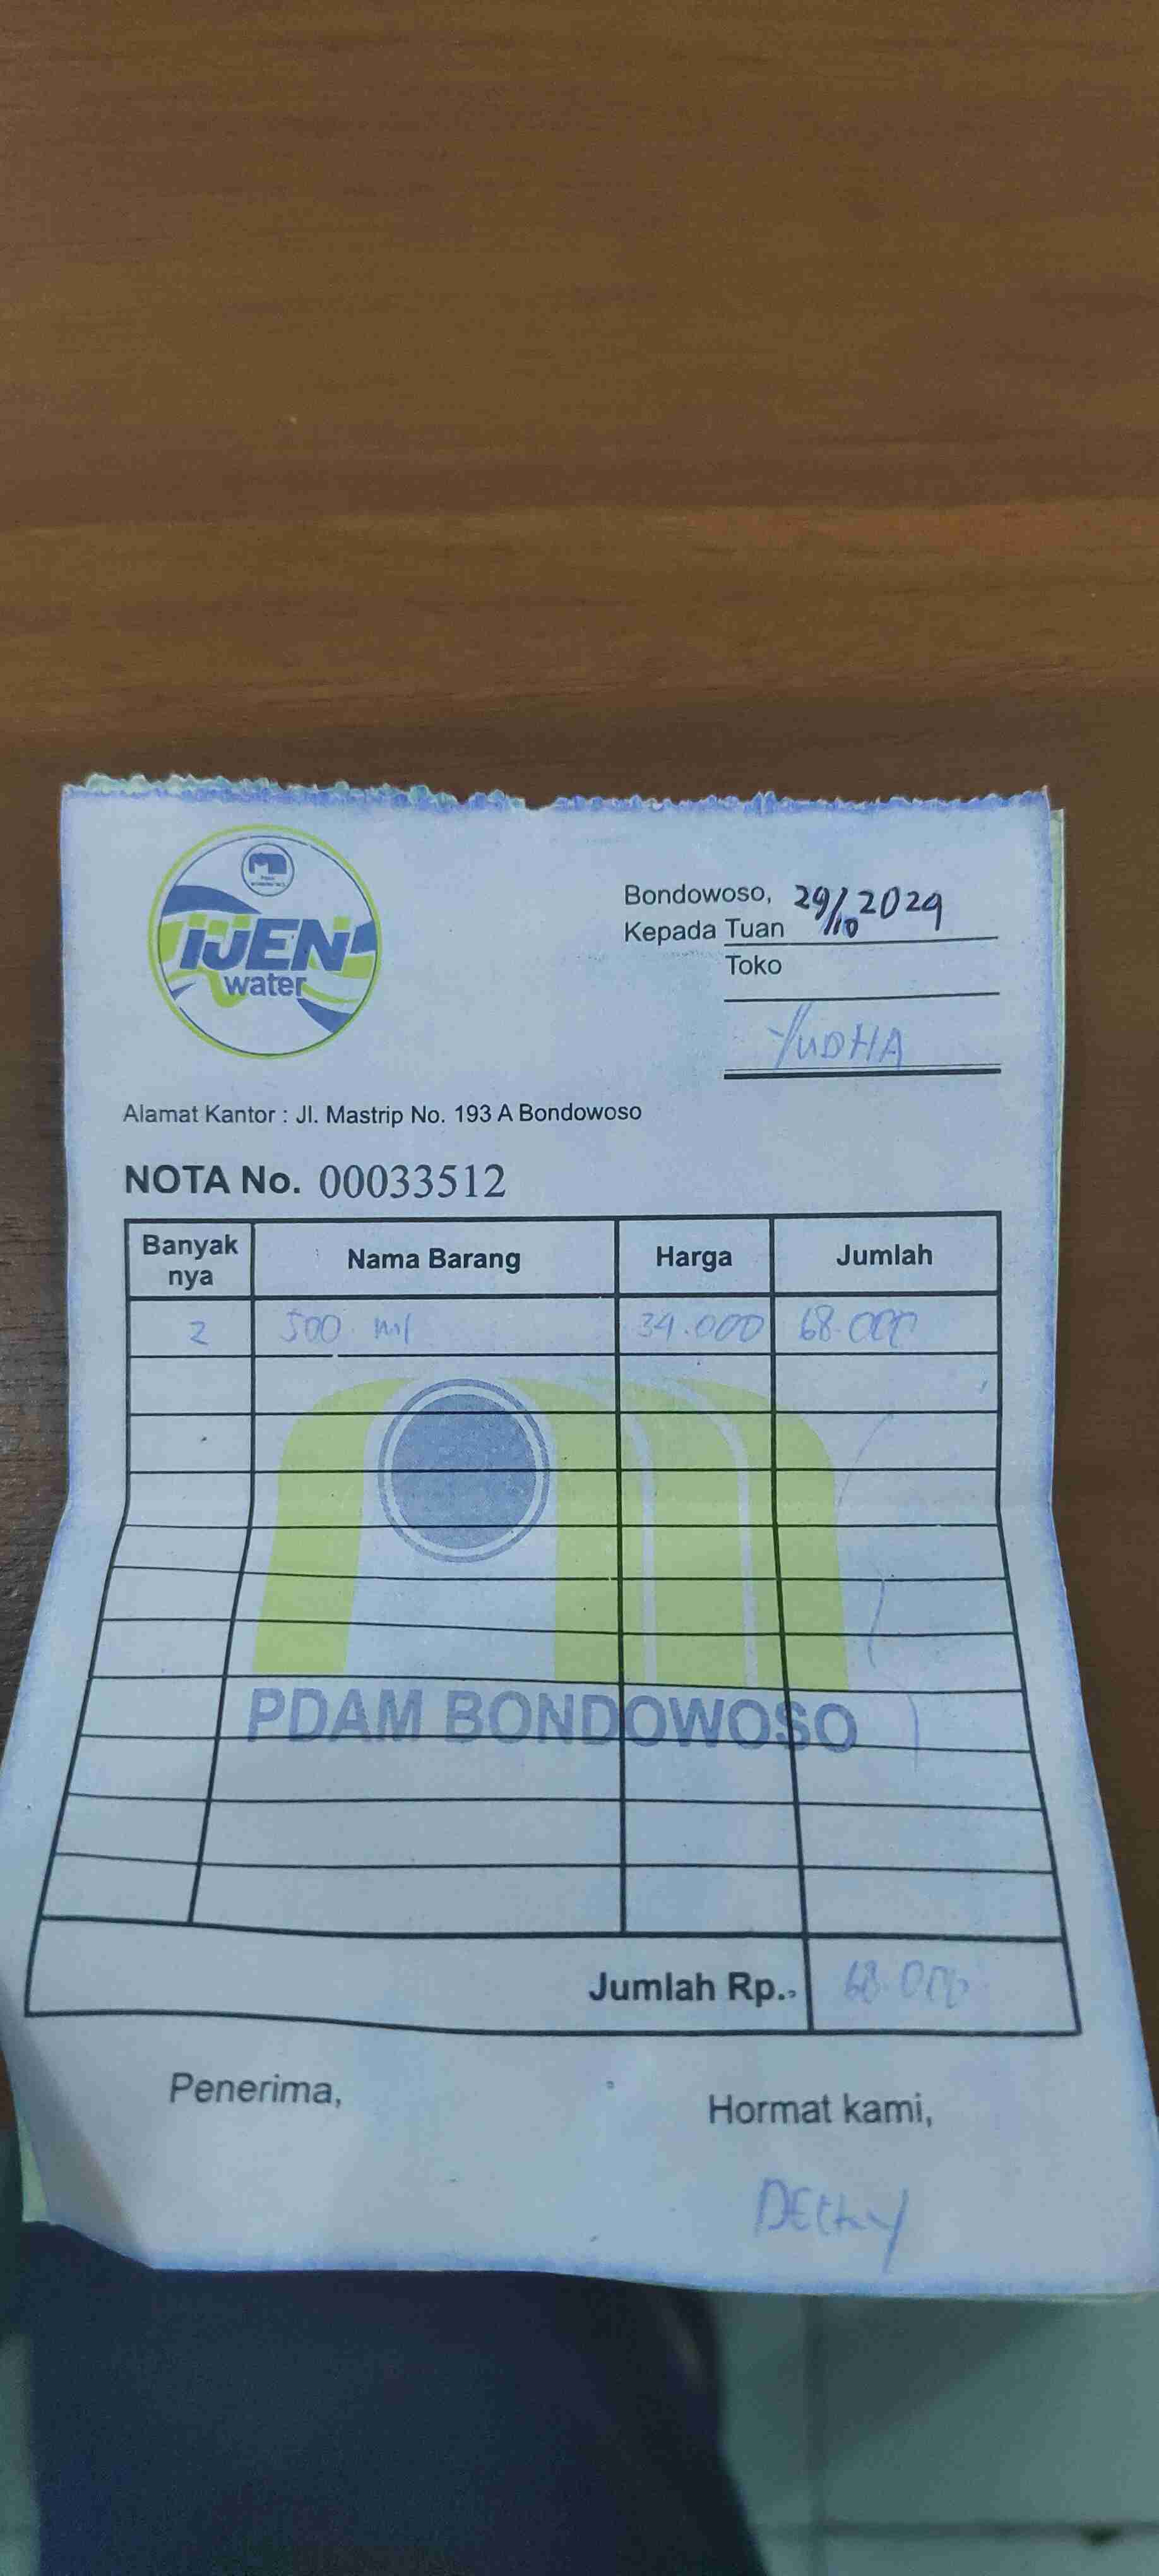 IJEN
water
Bondowoso, 29/10 2024
Kepada Tuan
Toko
YUDHA
Alamat Kantor : Jl. Mastrip No. 193 A Bondowoso
NOTA No. 00033512
Banyak nya Nama Barang Harga Jumlah
2 500 ml 34.000 68.000
PDAM BONDOWOSO
Jumlah Rp., 68.000
Penerima,
Hormat kami,